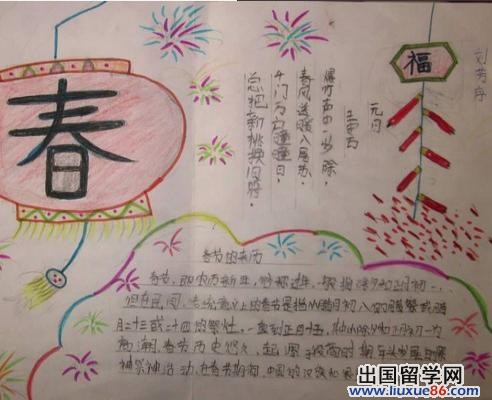 春
福
元日
王安石
爆竹声中一岁除，
春风送暖入屠苏.
千门万户瞳瞳日.
总把新桃换旧符.
春节的来历
春节，即农历新年，俗称过年，一般指除夕和正月初一.
但在民间，传统意义上的春节是指从腊月初八的腊祭或腊
月二十三或二十四的祭灶，一直到正月十五，其中以除夕和正月初一为
高潮.春节历史悠久，起源于殷商时期年头岁尾的祭
神祭祖活动，在春节期间，中国的汉族和
出国留学网
www.liuxue86.com